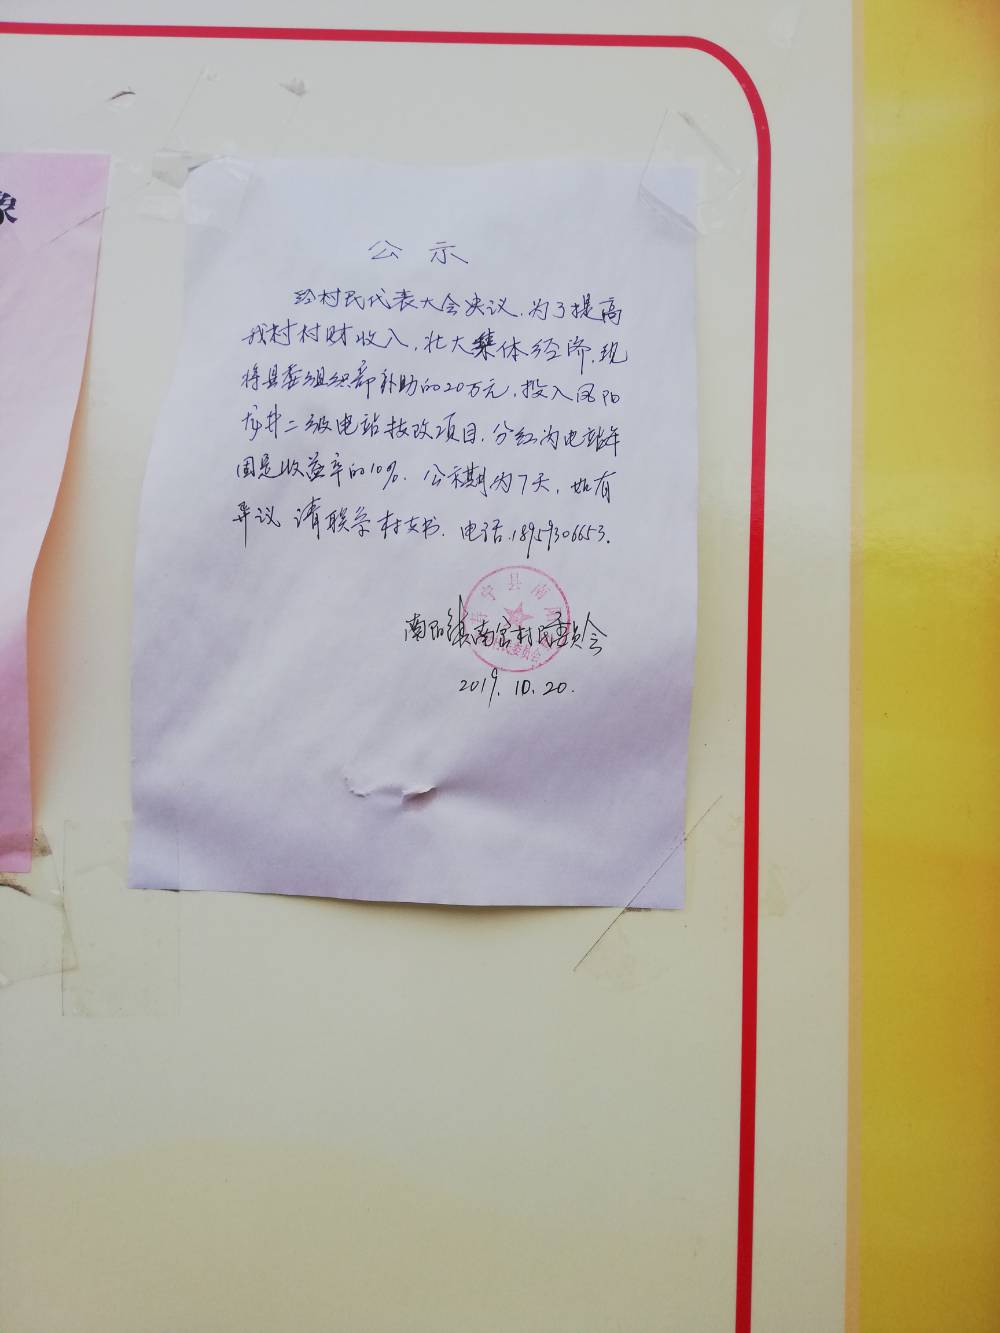 象
公示
经村民代表大会决议,为了提高
我村村财收入,壮大集体经济,现
将县委组织部补助的20万元,投入凤阳
龙井二级电站技改项目.分红为电站年
固定收益率的10%.公示期为7天,如有
异议 请联系村支书.电话:18959306653.
寿宁县南阳
村民委员会
南阳镇南官村民委员会
2019.10.20.